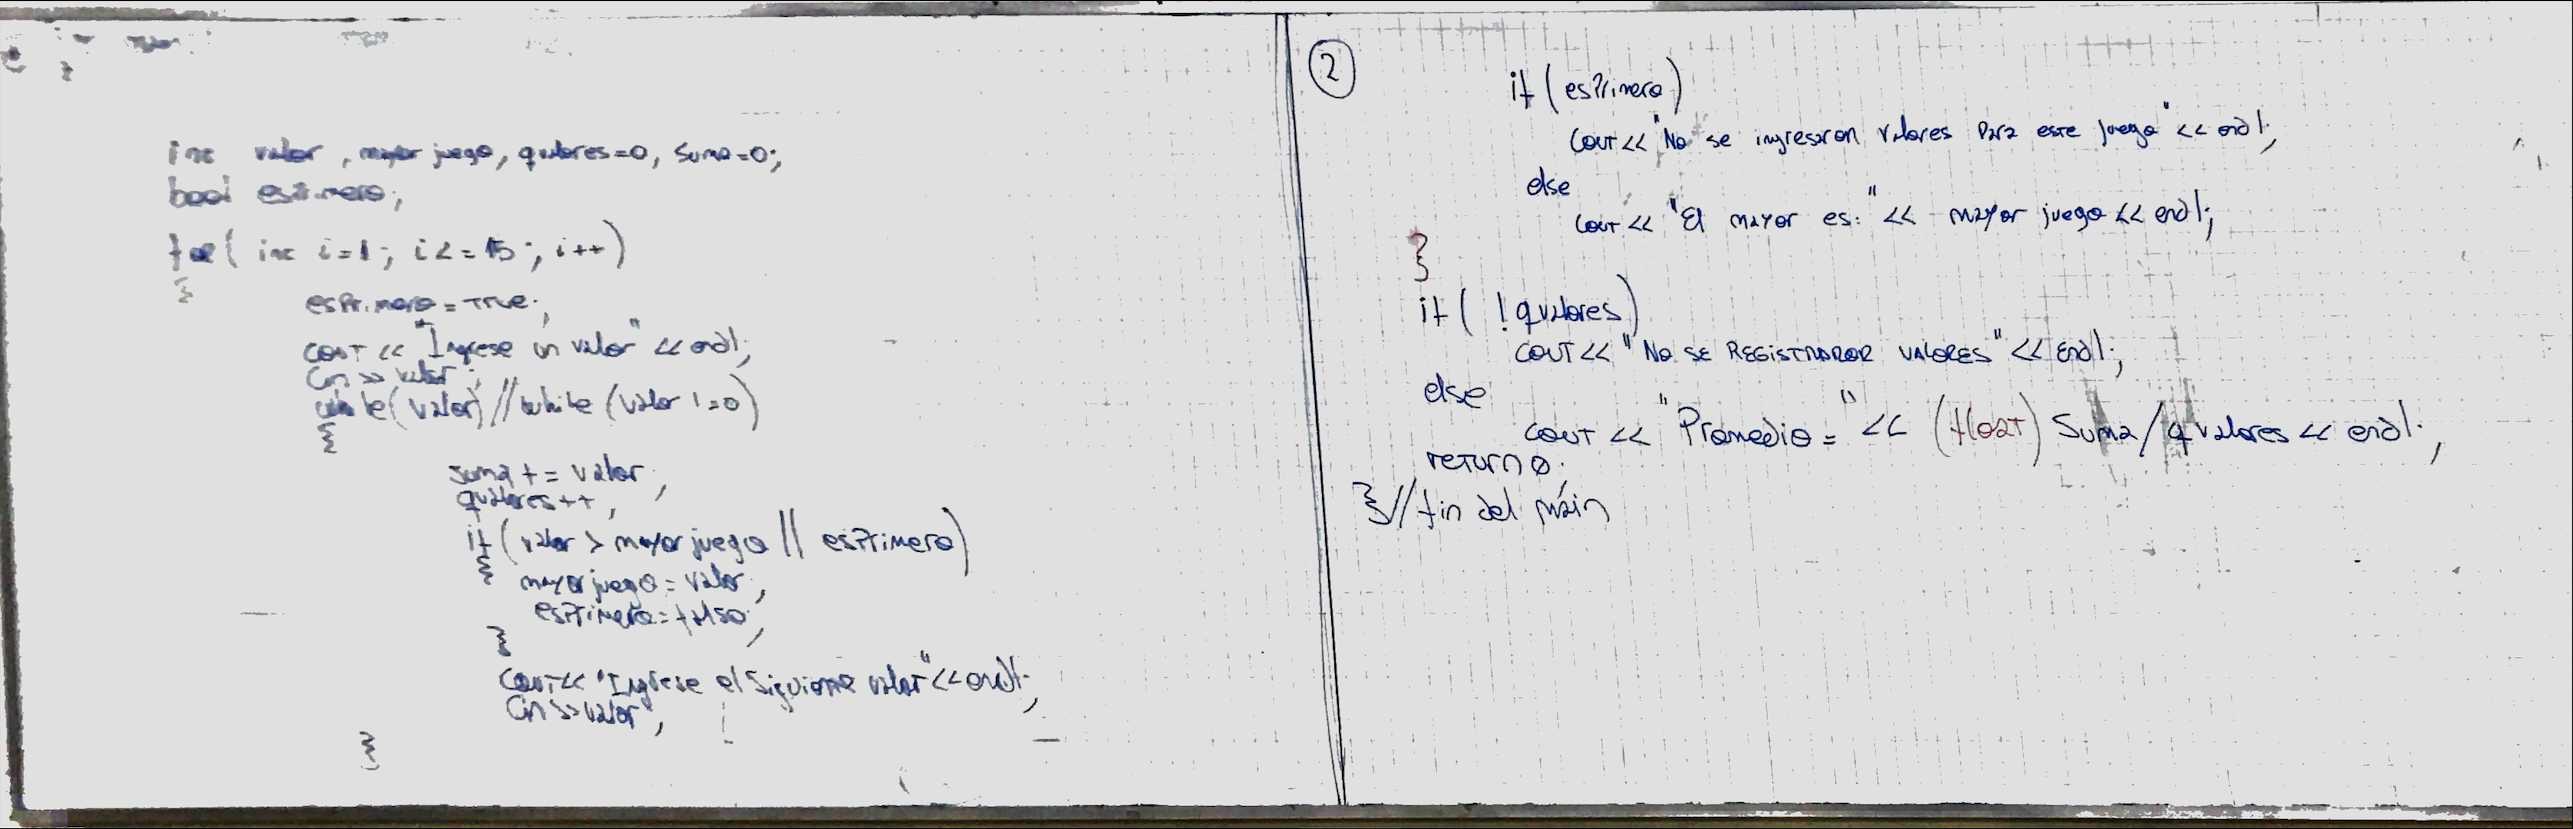 int valor, mayor juego, qvalores=0, suma=0;
bool esPrimero;
for( int i=1; i<=15; i++)
{
esPrimero=True;
cout << "Ingrese un valor" << endl;
Cin >> valor;
while(valor) //while (valor !=0)
{
suma += valor;
qvalores++;
if (valor > mayor juego || esPrimero)
{ mayor juego = valor;
esPrimero=falso;
}
cout<< "Ingrese el siguiente valor"<<endl;
Cin>>valor;
}
2
if (esPrimero)
Cout<< "No se ingresaron valores para este juego" << endl;
else
Cout << "El mayor es:" << mayor juego << endl;
}
if( !qvalores)
COUT<< "No SE REGISTRAROR VALORES" << Endl;
else
cout << "Promedio = " << (float) Suma/qvalores << endl;
return 0;
}//fin del main